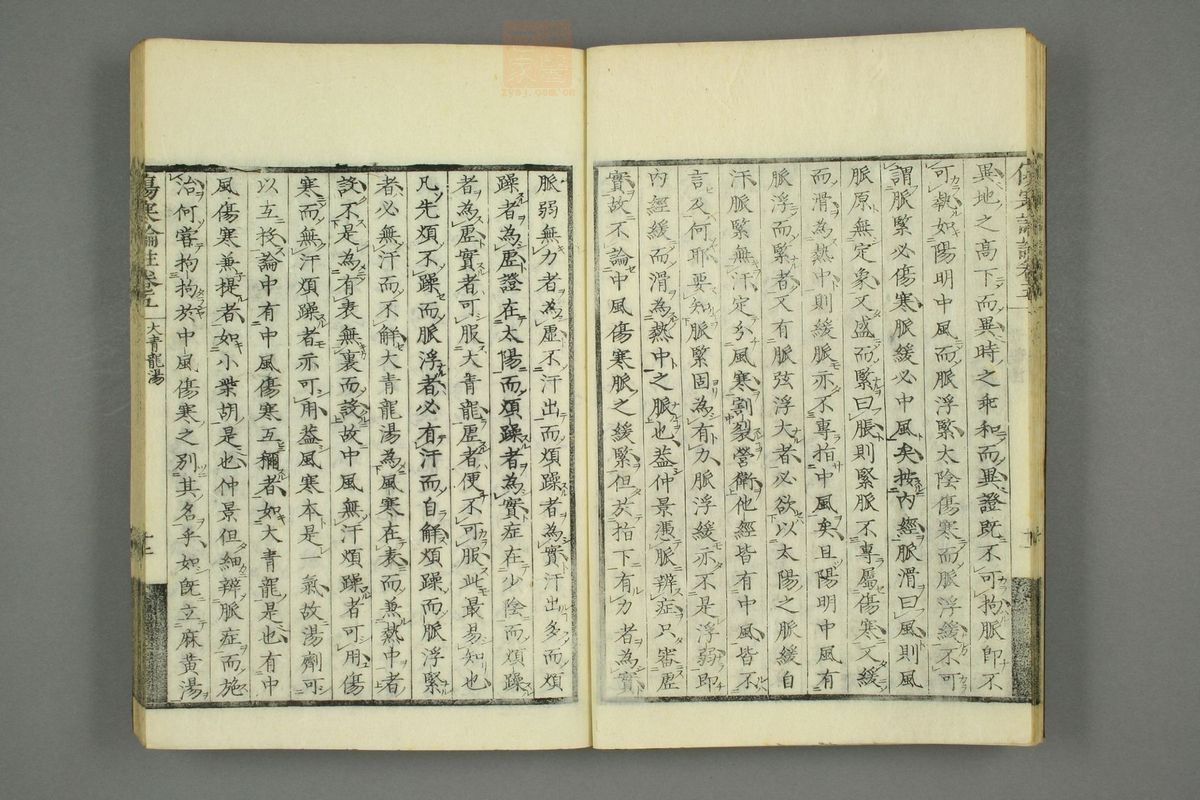 異地之高下而異時之乖和而異證既不可拘脈即不
可執如陽明中風而脈浮緊太陰傷寒而脈浮緩不可
謂脈緊必傷寒脈緩必中風矣按內經脈滑曰風則風
脈原無定象又盛而緊曰脹則緊脈不專屬傷寒又緩
而滑為熱中則緩脈亦不專指中風矣且陽明中風有
脈浮而緊者又有脈弦浮大者必欲以太陽之脈緩自
汗脈緊無汗定分風寒割裂營衛他經皆有中風皆不
言及何耶要知脈緊固為有力脈浮緩亦不是浮弱即
內經緩而滑為熱中之脈也蓋仲景憑脈辨症只審虛
實故不論中風傷寒脈之緩緊但於指下有力者為實
脈弱無力者為虛不汗出而煩躁者為實汗出多而煩
躁者為虛證在太陽而煩躁者為實症在少陰而煩躁
者為虛實者可服大青龍虛者便不可服此最易知也
凡先煩不躁而脈浮者必有汗而自解煩躁而脈浮緊
者必無汗而不解大青龍湯為風寒在表而兼熱中者
設不是為有表無裏而設故中風無汗煩躁者可用傷
寒而無汗煩躁者亦可用蓋風寒本是一氣故湯劑可
以互投論中有中風傷寒互稱者如大青龍是也有中
風傷寒兼提者如小柴胡是也仲景但細辨脈症而施
治何嘗拘拘於中風傷寒之別其名乎如既立麻黃湯
傷寒論註卷之五
大青龍湯